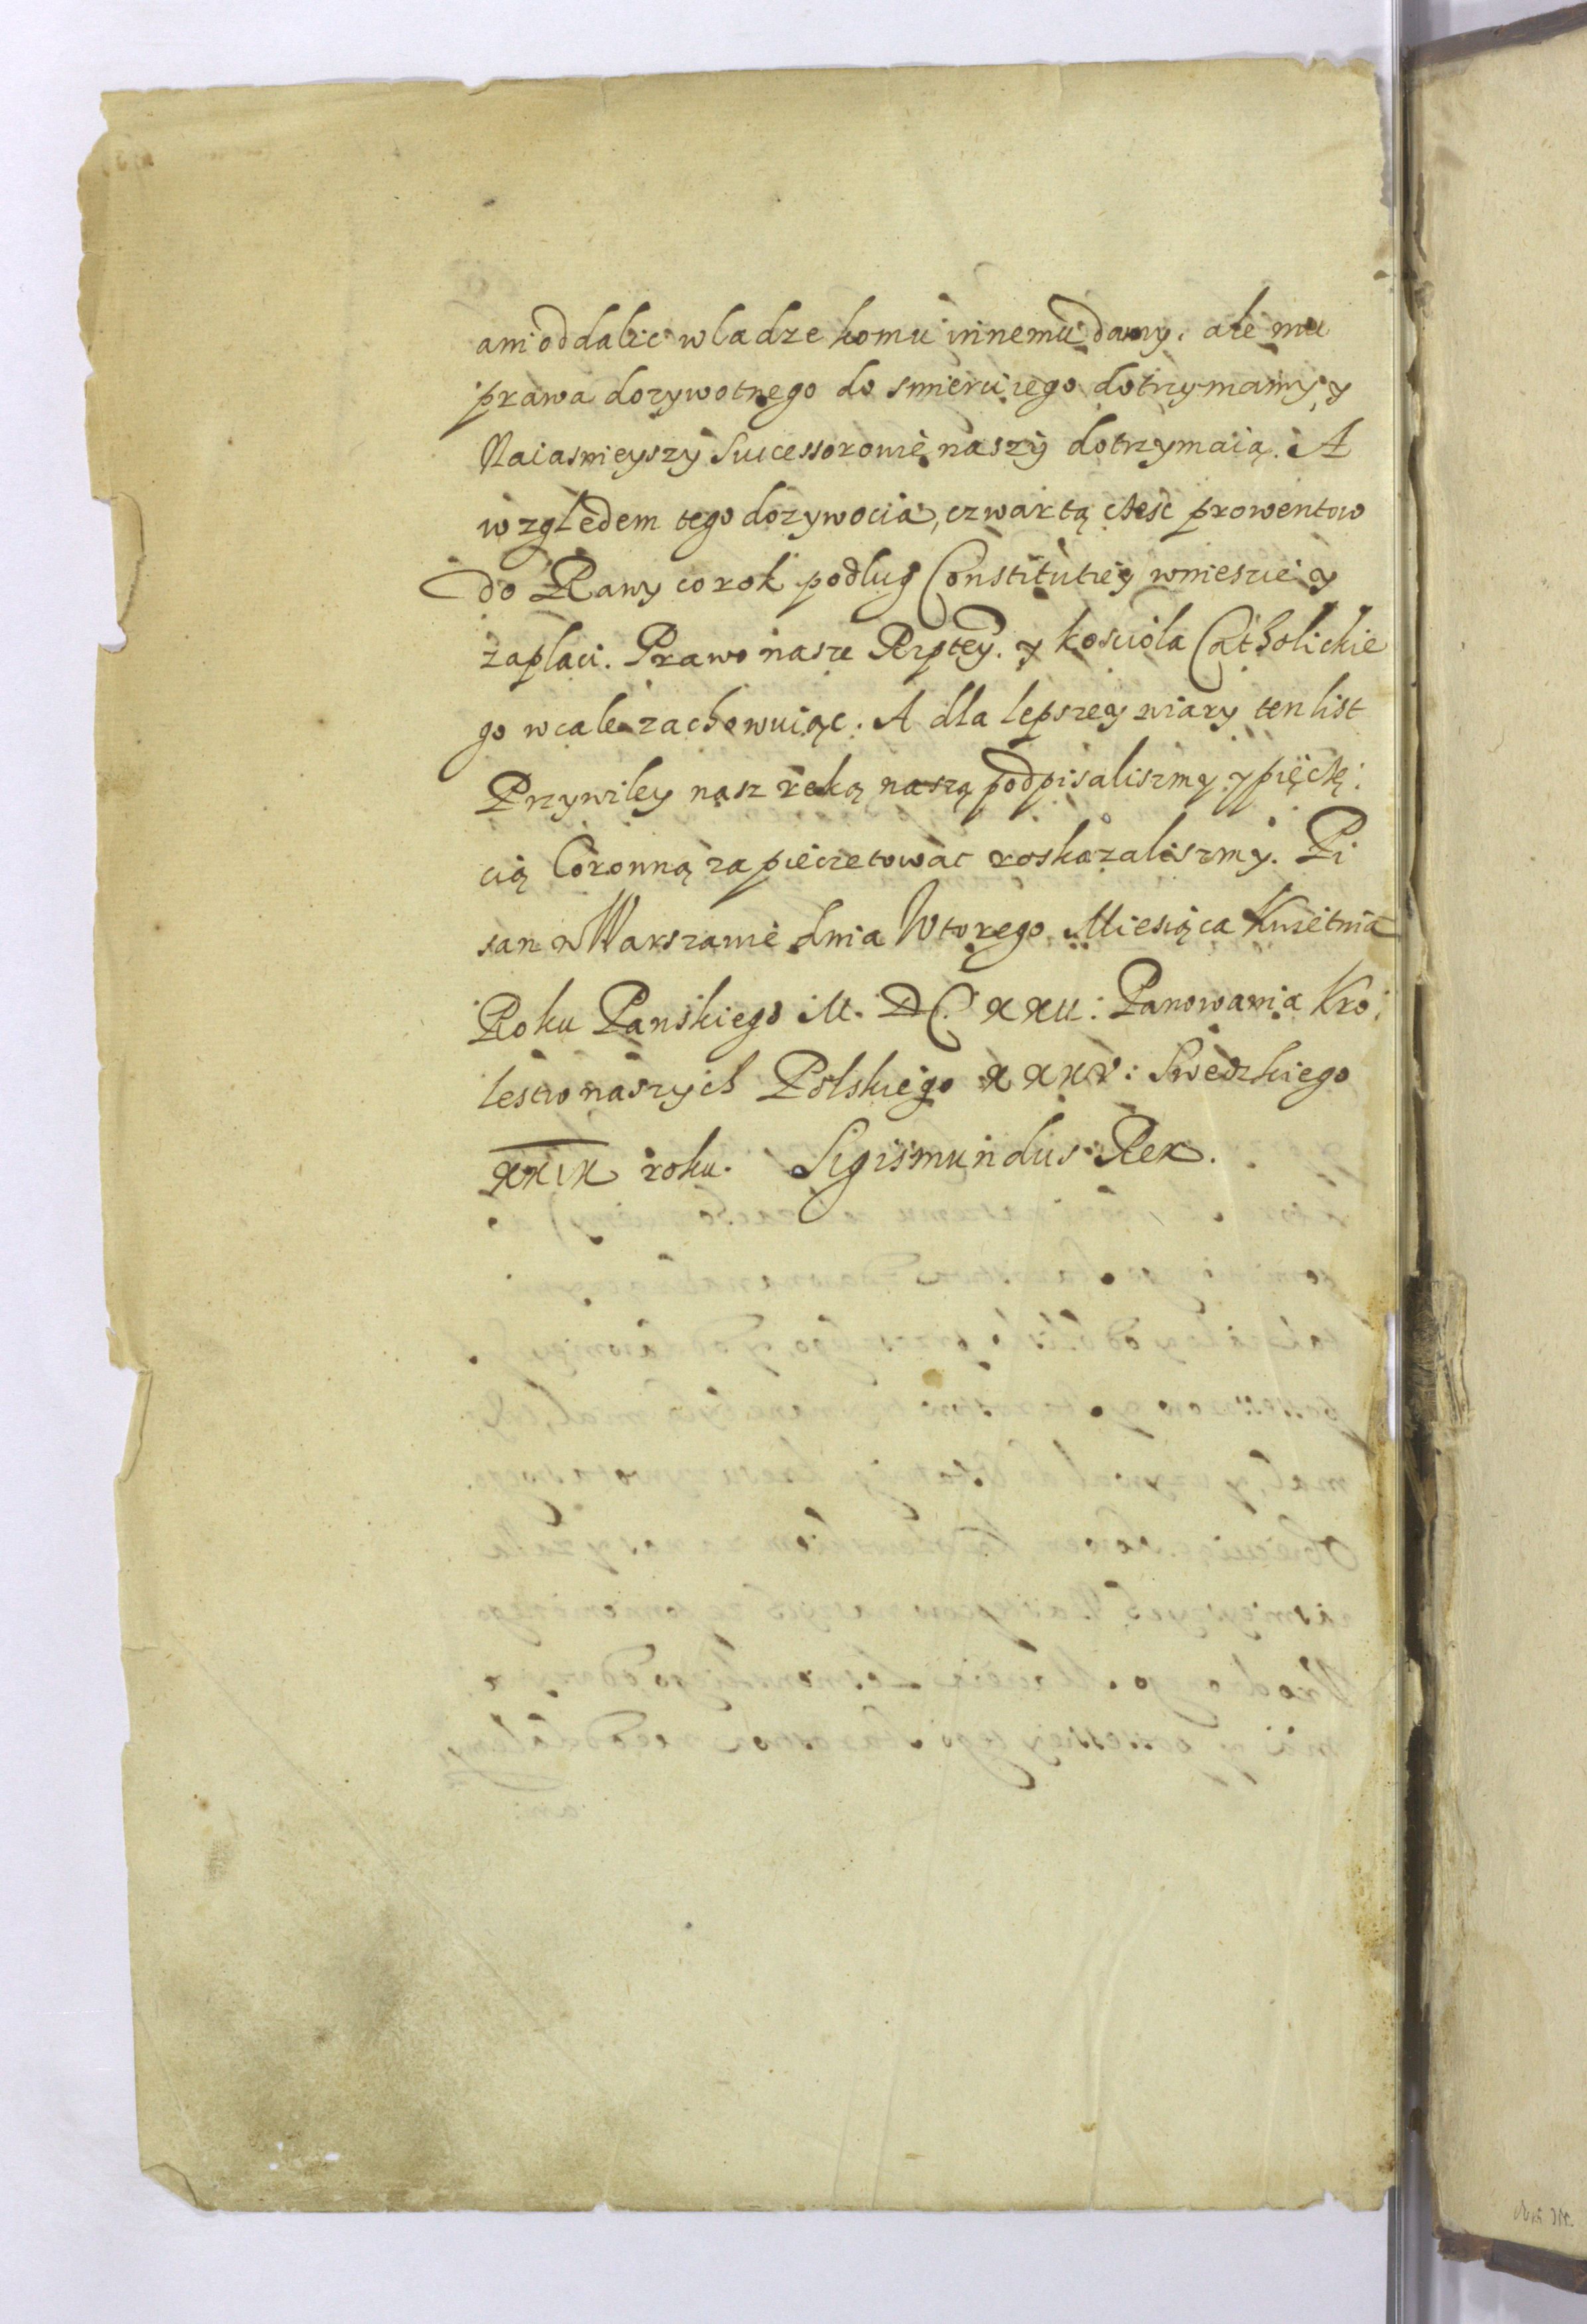 ani oddalic wladze komu innemu damy. ale mu
prawa dozywotnego do smierci iego dotrzymamy, y
Naiasnieyszy Successorowie naszy dotrzymaią. A
względem tego dozywocia, czwartą część prowentow
do Rawy co rok podlug Constitutiey wniesie y
zaplaci. Prawo nasze Rzptey. y kosciola Catholickie
go wcale zachowuiąc. A dla lepszey wiary ten list
Przywiley nasz ręką naszą podpisaliszmy y pięczę:
cią Coronną zapieczetowac roskazaliszmy. Pi
san w Warszawie dnia Wtorego Miesiąca Kwietnia
Roku Panskiego M. DC. XXII: Panowania Kro:
lestw naszych Polskiego XXXV: Swedzkiego
XXIX roku. Sigismundus Rex.